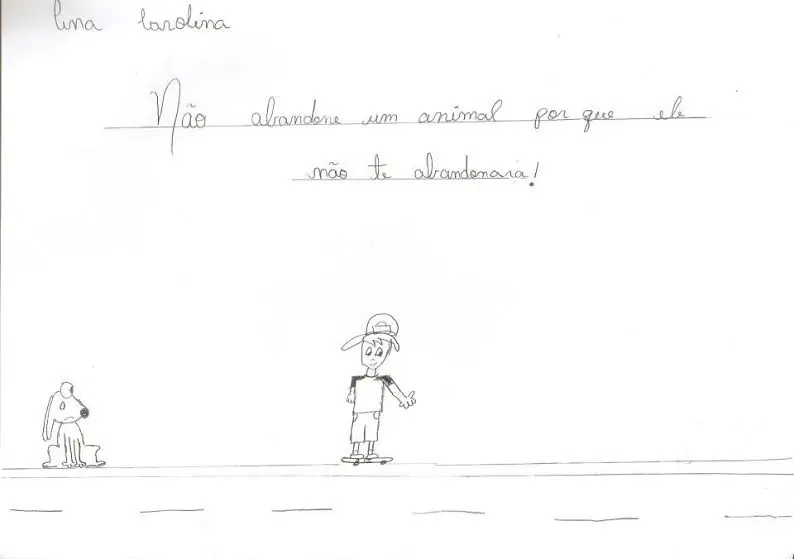 Carolina
Não abandone um animal por que ele
não te abandonaria!